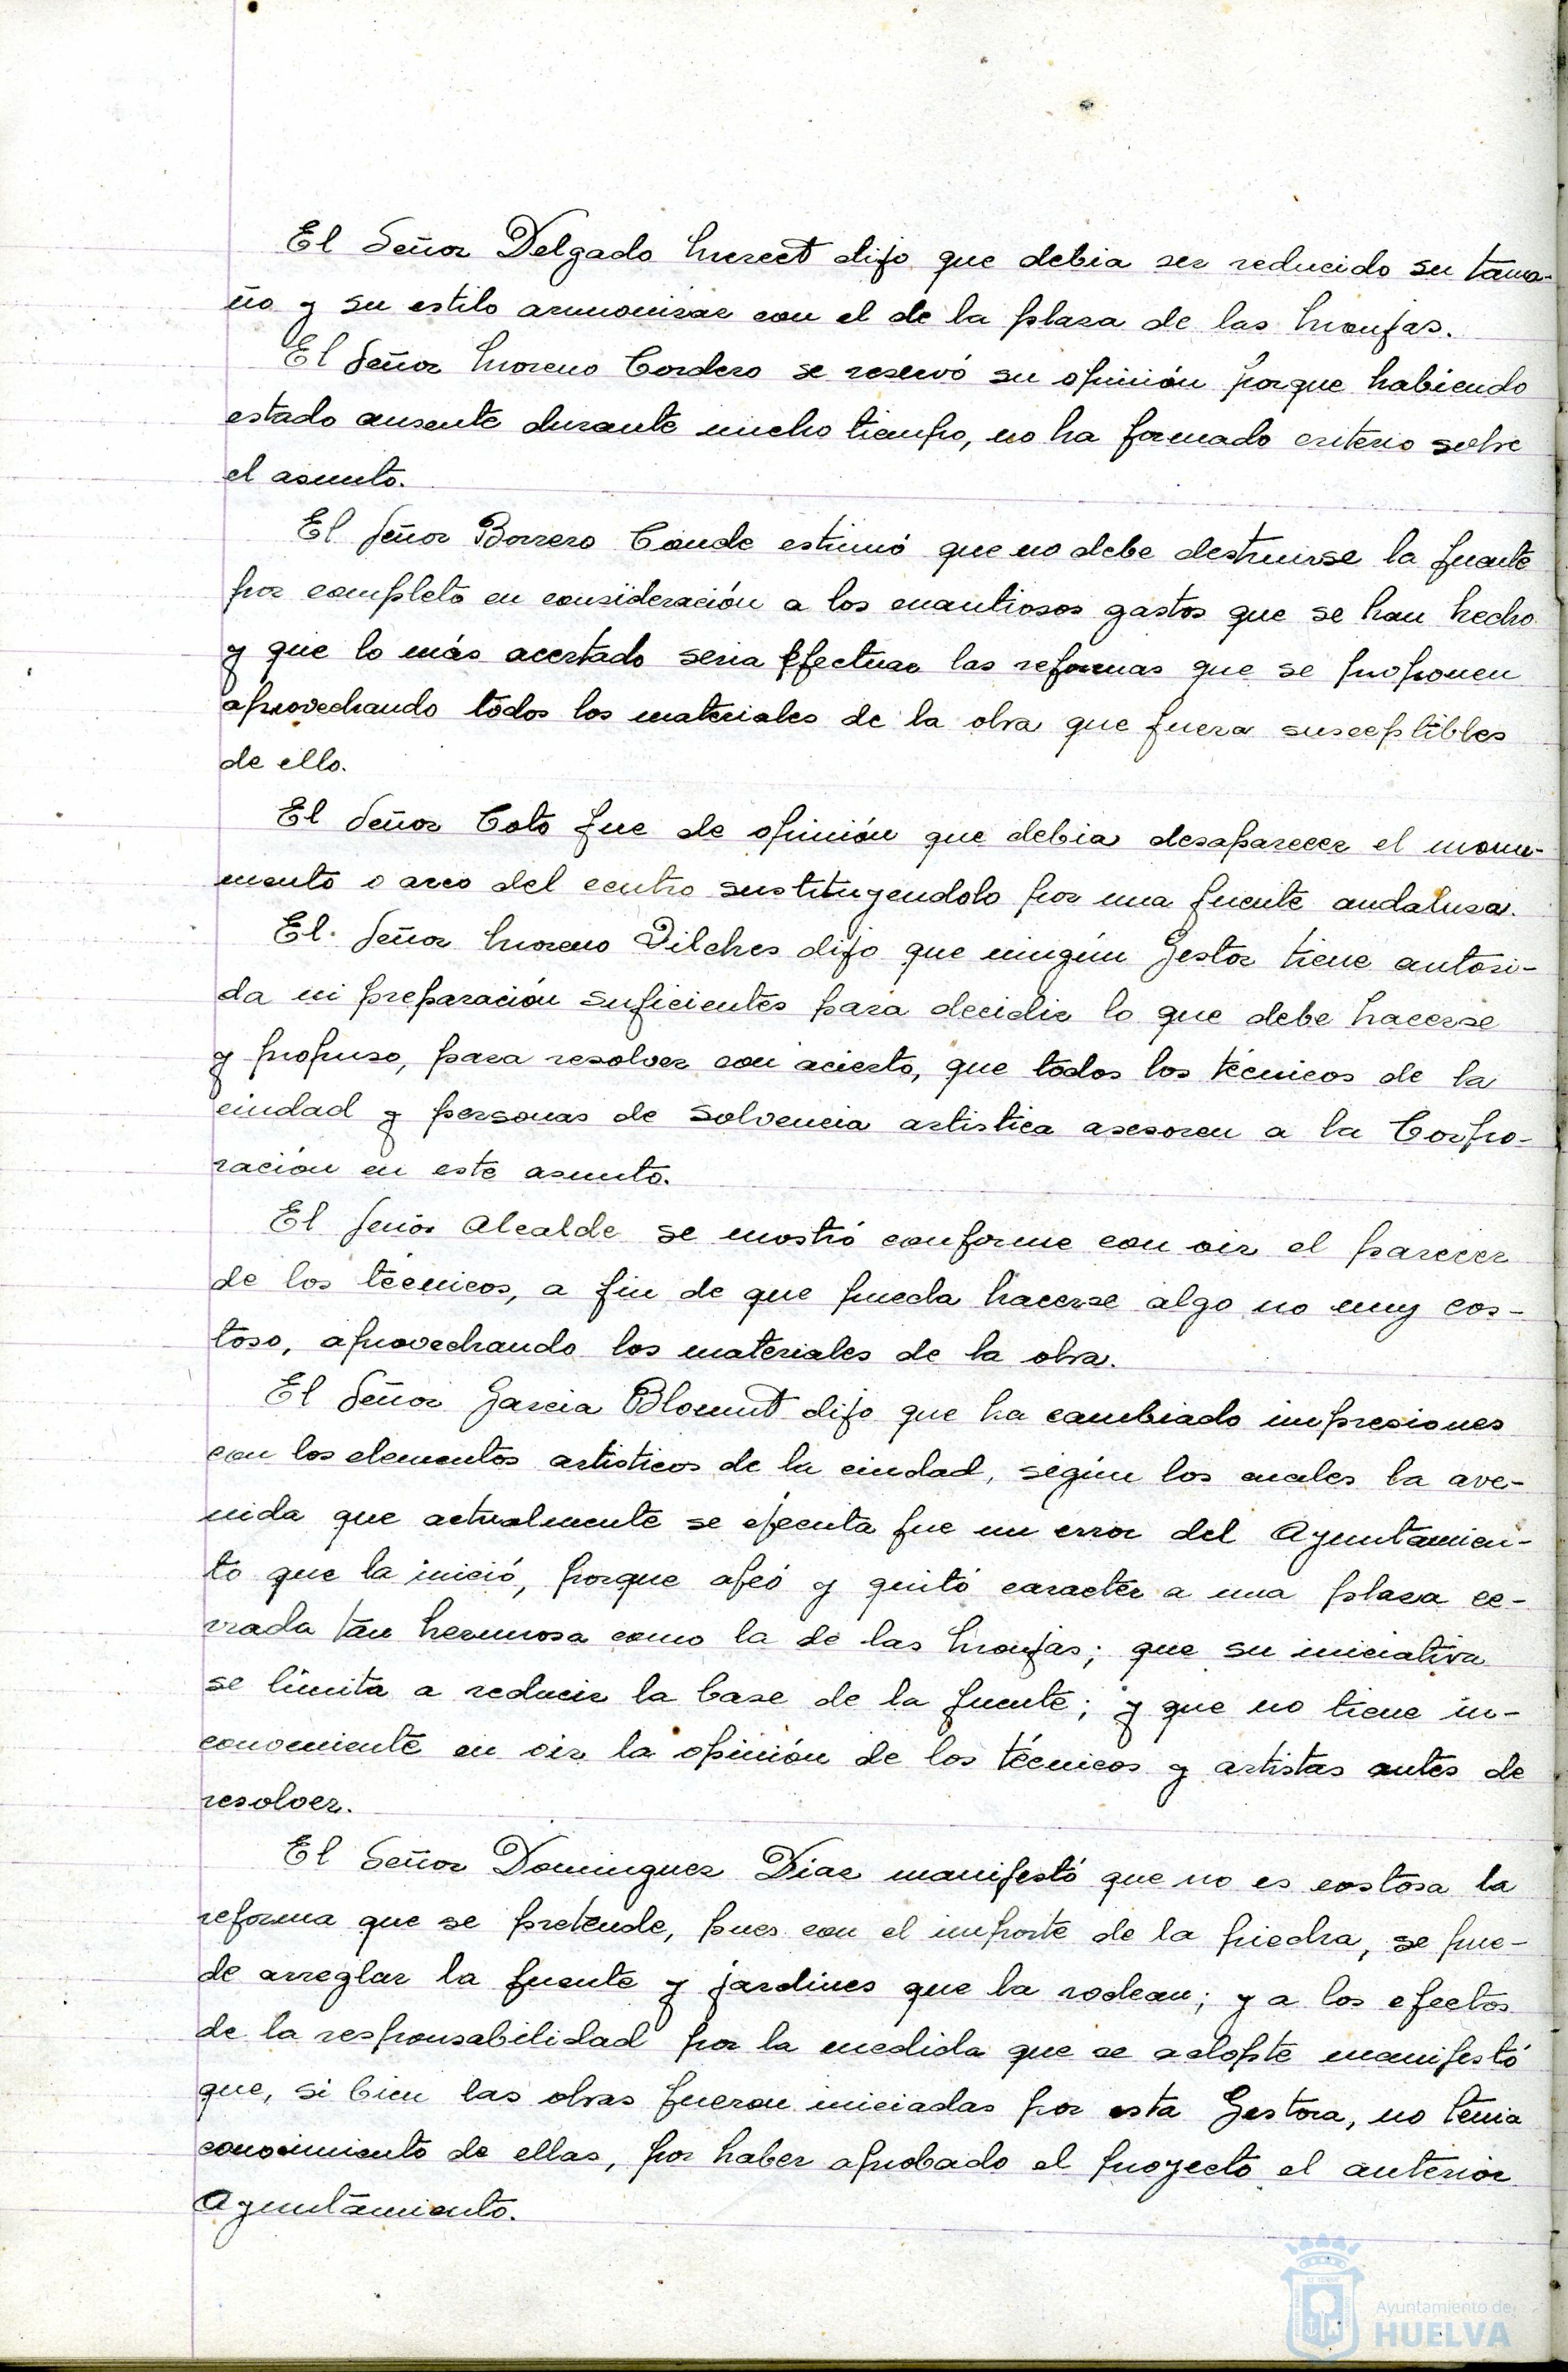 El Señor Delgado Mercet dijo que debia ser reducido su tama-
ño y su estilo armonizar con el de la plaza de las Monjas.
El Señor Moreno Cordero se reservó su opinión porque habiendo
estado ausente durante mucho tiempo, no ha formado criterio sobre
el asunto.
El Señor Borrero Conde estimó que no debe destruirse la fuente
por completo en consideración a los cuantiosos gastos que se han hecho
y que lo más acertado seria efectuar las reformas que se proponen
aprovechando todos los materiales de la obra que fuera susceptibles
de ello.
El Señor Coto fue de opinión que debia desaparecer el monu-
mento o arco del centro sustituyendolo por una fuente andaluza.
El Señor Moreno Pilches dijo que ningún Gestor tiene autori-
da ni preparación suficientes para decidir lo que debe hacerse
y propuso, para resolver con acierto, que todos los técnicos de la
ciudad y personas de solvencia artistica asesoren a la Corpo-
ración en este asunto.
El Señor Alcalde se mostró conforme con oir el parecer
de los técnicos, a fin de que pueda hacerse algo no muy cos-
toso, aprovechando los materiales de la obra.
El Señor Garcia Blomut dijo que ha cambiado impresiones
con los elementos artisticos de la ciudad, según los cuales la ave-
nida que actualmente se ejecuta fue un error del Ayuntamien-
to que la inició, porque afeó y quitó caracter a una plaza ce-
rrada tan hermosa como la de las Monjas; que su iniciativa
se limita a reducir la base de la fuente; y que no tiene in-
conveniente en oir la opinión de los técnicos y artistas antes de
resolver.
El Señor Dominguez Diaz manifestó que no es costosa la
reforma que se pretende, pues con el importe de la piedra, se pue-
de arreglar la fuente y jardines que la rodean; y a los efectos
de la responsabilidad por la medida que se adopte manifestó
que, si bien las obras fueron iniciadas por esta Gestora, no tenia
conocimiento de ellas, por haber aprobado el proyecto el anterior
Ayuntamiento.
Ayuntamiento de
HUELVA